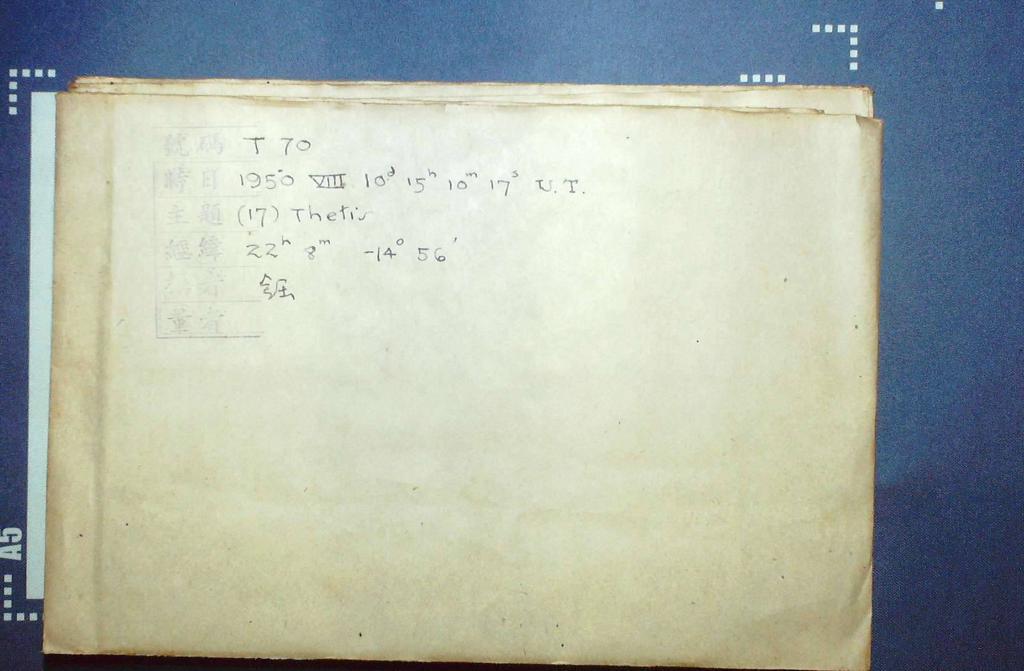 號碼 T 70
時日 1950 VIII 10d 15h 10m 17s U.T.
主題 (17) Thetis
經緯 22h 8m -14° 56'
量者
A5